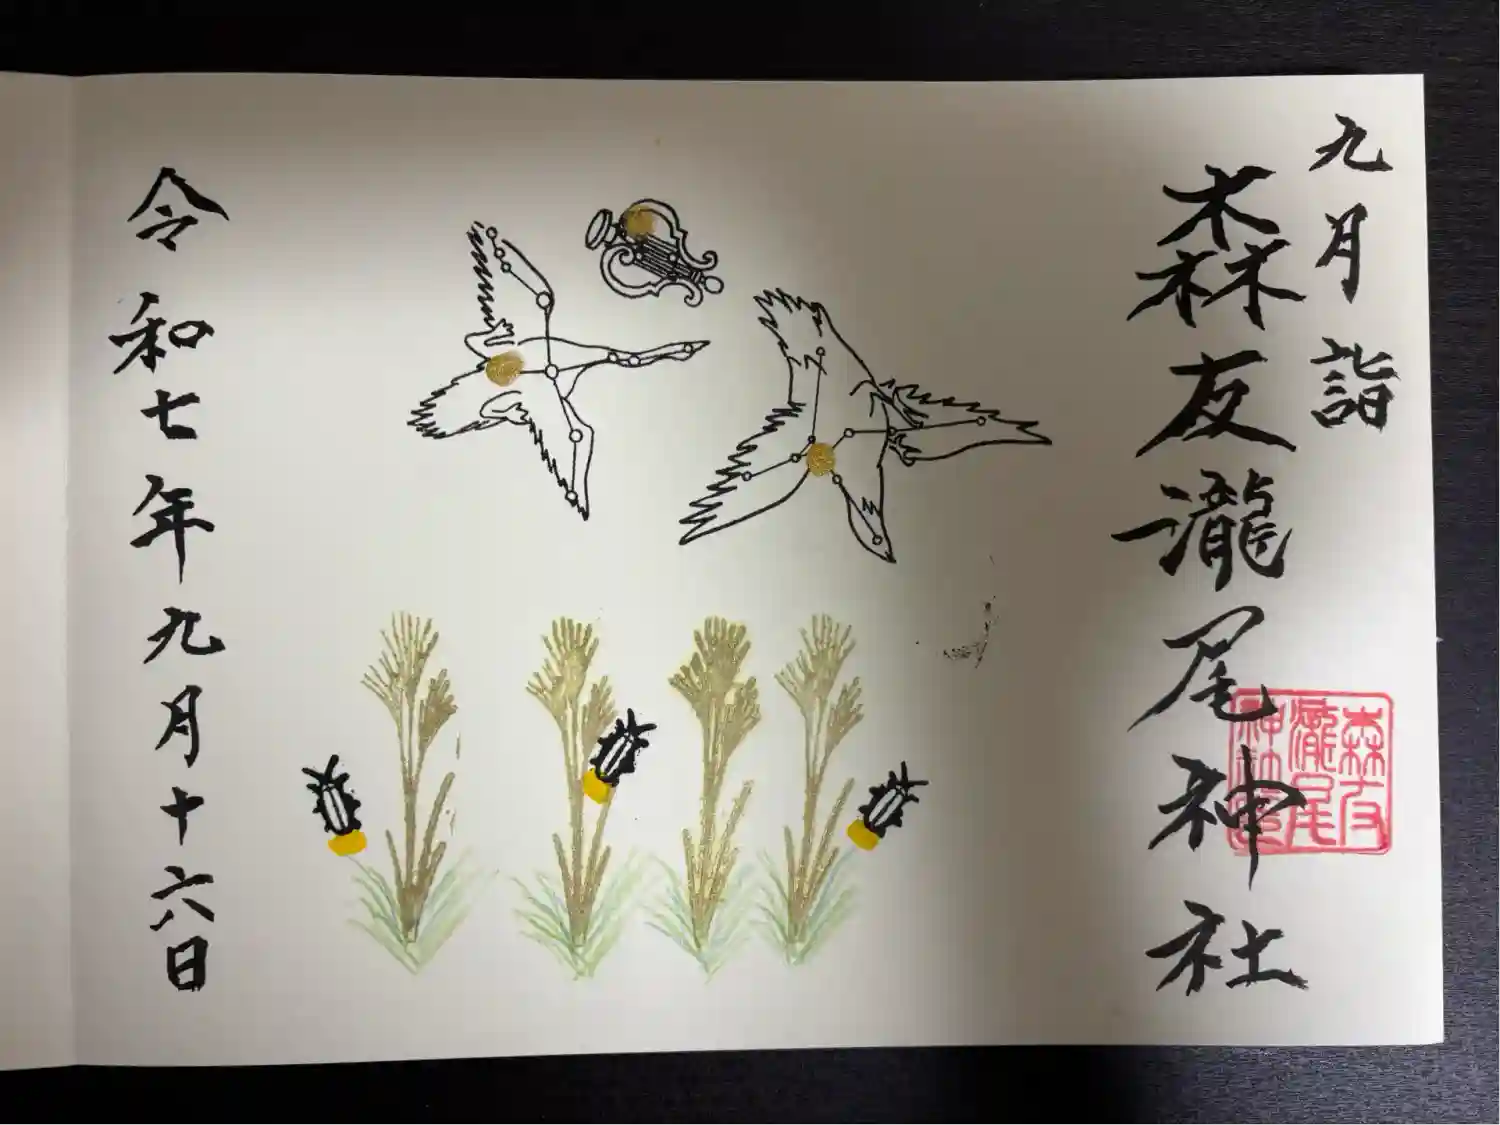 九月詣
森友瀧尾神社
森友
瀧尾
令和七年九月十六日